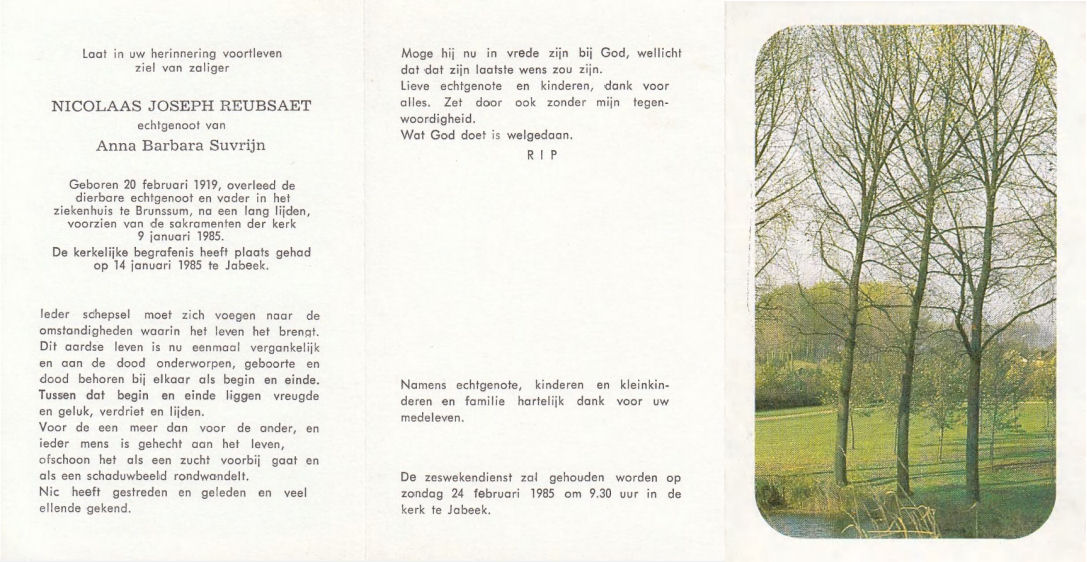 Laat in uw herinnering voortleven
ziel van zaliger
NICOLAAS JOSEPH REUBSAET
echtgenoot van
Anna Barbara Suvrijn
Geboren 20 februari 1919, overleed de
dierbare echtgenoot en vader in het
ziekenhuis te Brunssum, na een lang lijden,
voorzien van de sakramenten der kerk
9 januari 1985.
De kerkelijke begrafenis heeft plaats gehad
op 14 januari 1985 te Jabeek.
Ieder schepsel moet zich voegen naar de
omstandigheden waarin het leven het brengt.
Dit aardse leven is nu eenmaal vergankelijk
en aan de dood onderworpen, geboorte en
dood behoren bij elkaar als begin en einde.
Tussen dat begin en einde liggen vreugde
en geluk, verdriet en lijden.
Voor de een meer dan voor de ander, en
ieder mens is gehecht aan het leven,
ofschoon het als een zucht voorbij gaat en
als een schaduwbeeld rondwandelt.
Nic heeft gestreden en geleden en veel
ellende gekend.
Moge hij nu in vrede zijn bij God, wellicht
dat dat zijn laatste wens zou zijn.
Lieve echtgenote en kinderen, dank voor
alles. Zet door ook zonder mijn tegen-
woordigheid.
Wat God doet is welgedaan.
R I P
Namens echtgenote, kinderen en kleinkin-
deren en familie hartelijk dank voor uw
medeleven.
De zeswekendienst zal gehouden worden op
zondag 24 februari 1985 om 9.30 uur in de
kerk te Jabeek.